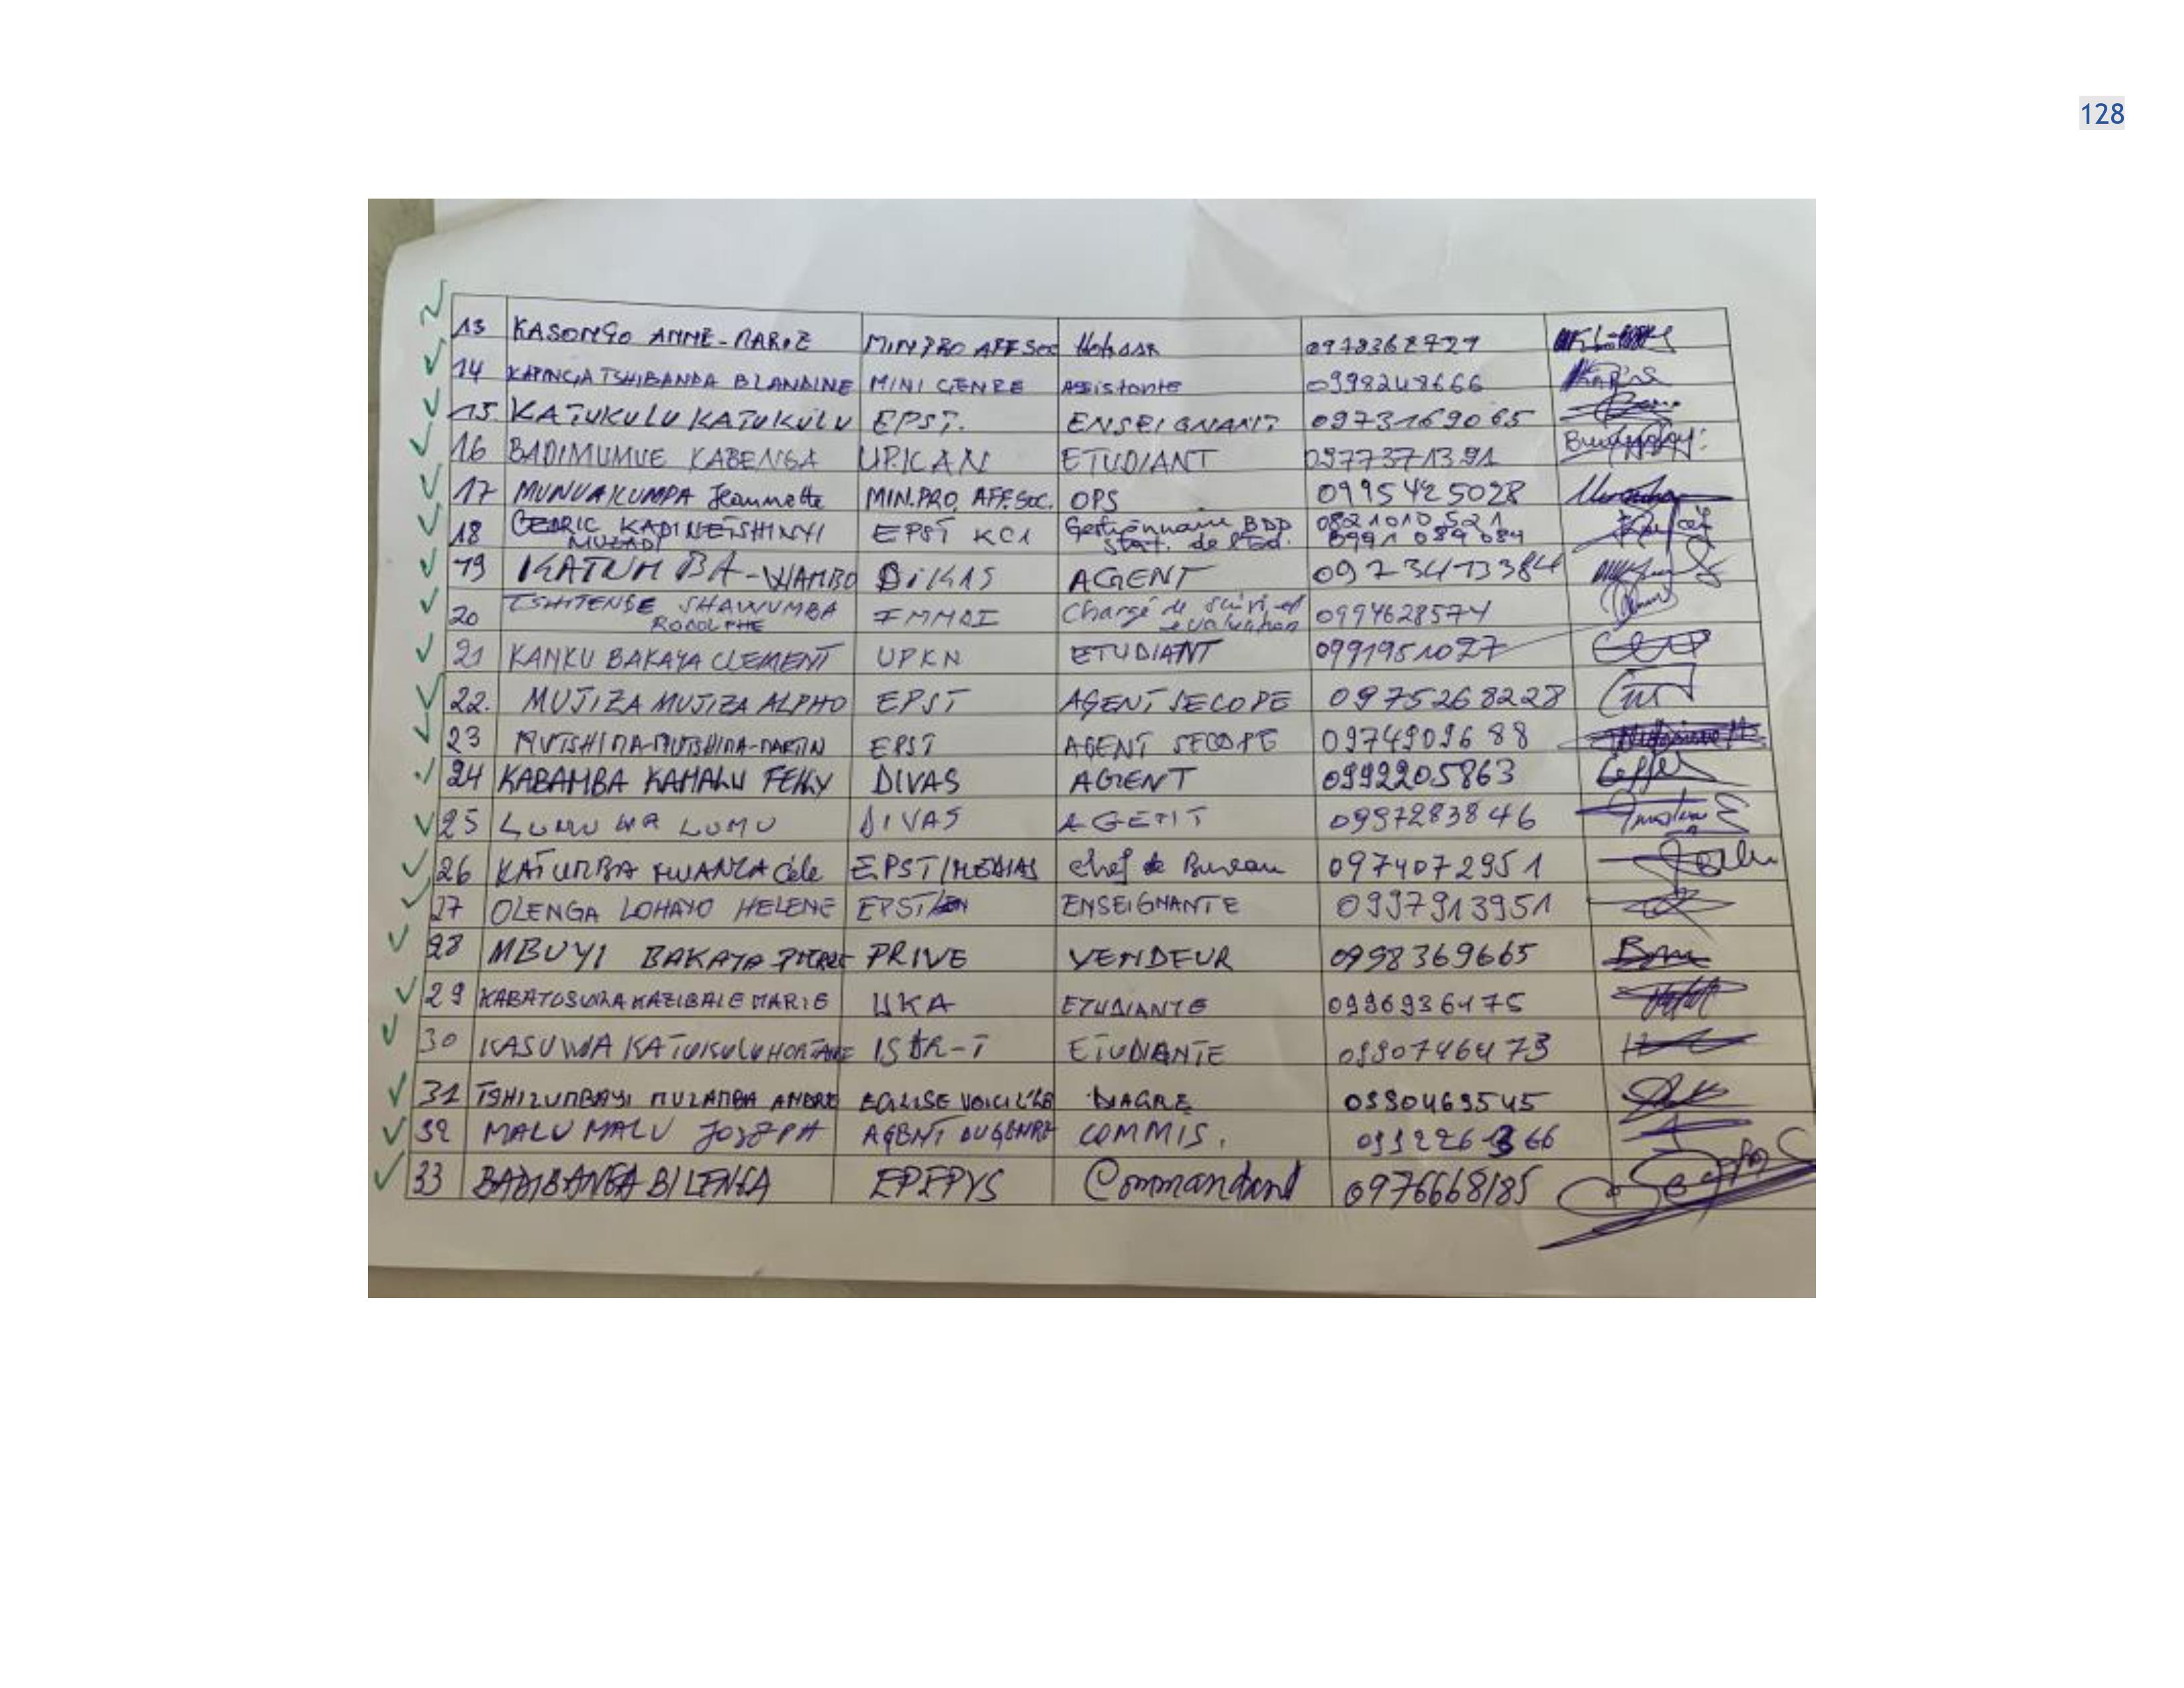 128
13 KASONGO ANNE-MARIE MIN PRO AFF SOC 0978368729
14 KAPINGA TSHIBANDA BLANDINE MINI GENRE Assistante 0998248666
15. KATUKULU KATUKULU EPST. ENSEIGNANT 0973169065
16 BADIMUMUE KABENGA UPKAN ETUDIANT 0977371391
17 MUNUAKUMPA Jeannette MIN.PRO. AFF.SOC. OPS 0995425028
18 CEDRIC KADINETSHINYI EPST KC1 Gestionnaire BDD 0821010521
MUZADI Stat. de l'Ed. 0991089084
19 KATUMBA-WAMBO DIKAS AGENT 0973413384
20 TSHITENGE SHAWUMBA Chargé de suivi et 0994628574
RODOLPHE evaluation
21 KANKU BAKAYA CLEMENT UPKN ETUDIANT 0991951027
22. MUJIZA MUJIZA ALPHO EPST AGENT SECOPE 0975268228
23 MUTSHIMA-MUTSHIMA-MARTIN EPST AGENT SECOPE 0974909688
24 KABAMBA KAMALU FELLY DIVAS AGENT 0992205863
25 LUMU WA LUMU DIVAS AGENT 0997283846
26 KATUMBA MWANZA Céle EPST/MEDIAS chef de Bureau 0974072951
27 OLENGA LOHAYO HELENE EPST ENSEIGNANTE 0997913951
28 MBUYI BAKAYA PIERRE PRIVE VENDEUR 0998369665
29 MARIE UKA ETUDIANTE 0996936175
30 KASUWA KATUKULU HORTANSE ISDR-T ETUDIANTE 0990746473
31 TSHIZUMBAYI MUZAMBA ANDRE EGLISE VOICI L'HO DIACRE 0990469545
32 MALU MALU JOSEPH AGENT DU GENRE COMMIS.
33 BADIBANGA BILENGA EPEPYS Commandant 0976668185